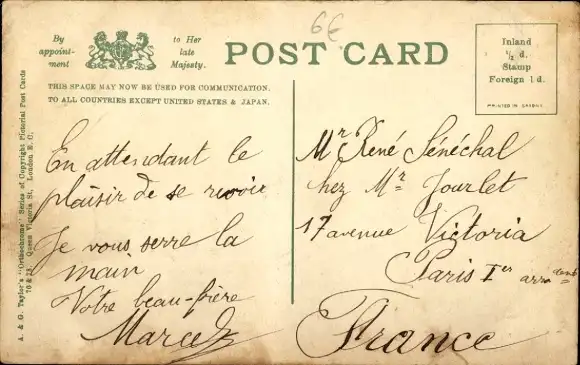 6€
By appoint-ment
to Her late Majesty.
POST CARD
THIS SPACE MAY NOW BE USED FOR COMMUNICATION.
TO ALL COUNTRIES EXCEPT UNITED STATES & JAPAN.
Inland
½ d.
Stamp
Foreign 1 d.
PRINTED IN SAXONY.
A. & G. Taylor's "Orthochrome" Series of Copyright Pictorial Post Cards
70 & 78 Queen Victoria St, London E. C.
En attendant le
plaisir de se revoir
Je vous serre la
main
Votre beau-frère
Marcel
Mr René Sénéchal
chez Mr Jourlet
17 avenue Victoria
Paris Ier arrondt
France